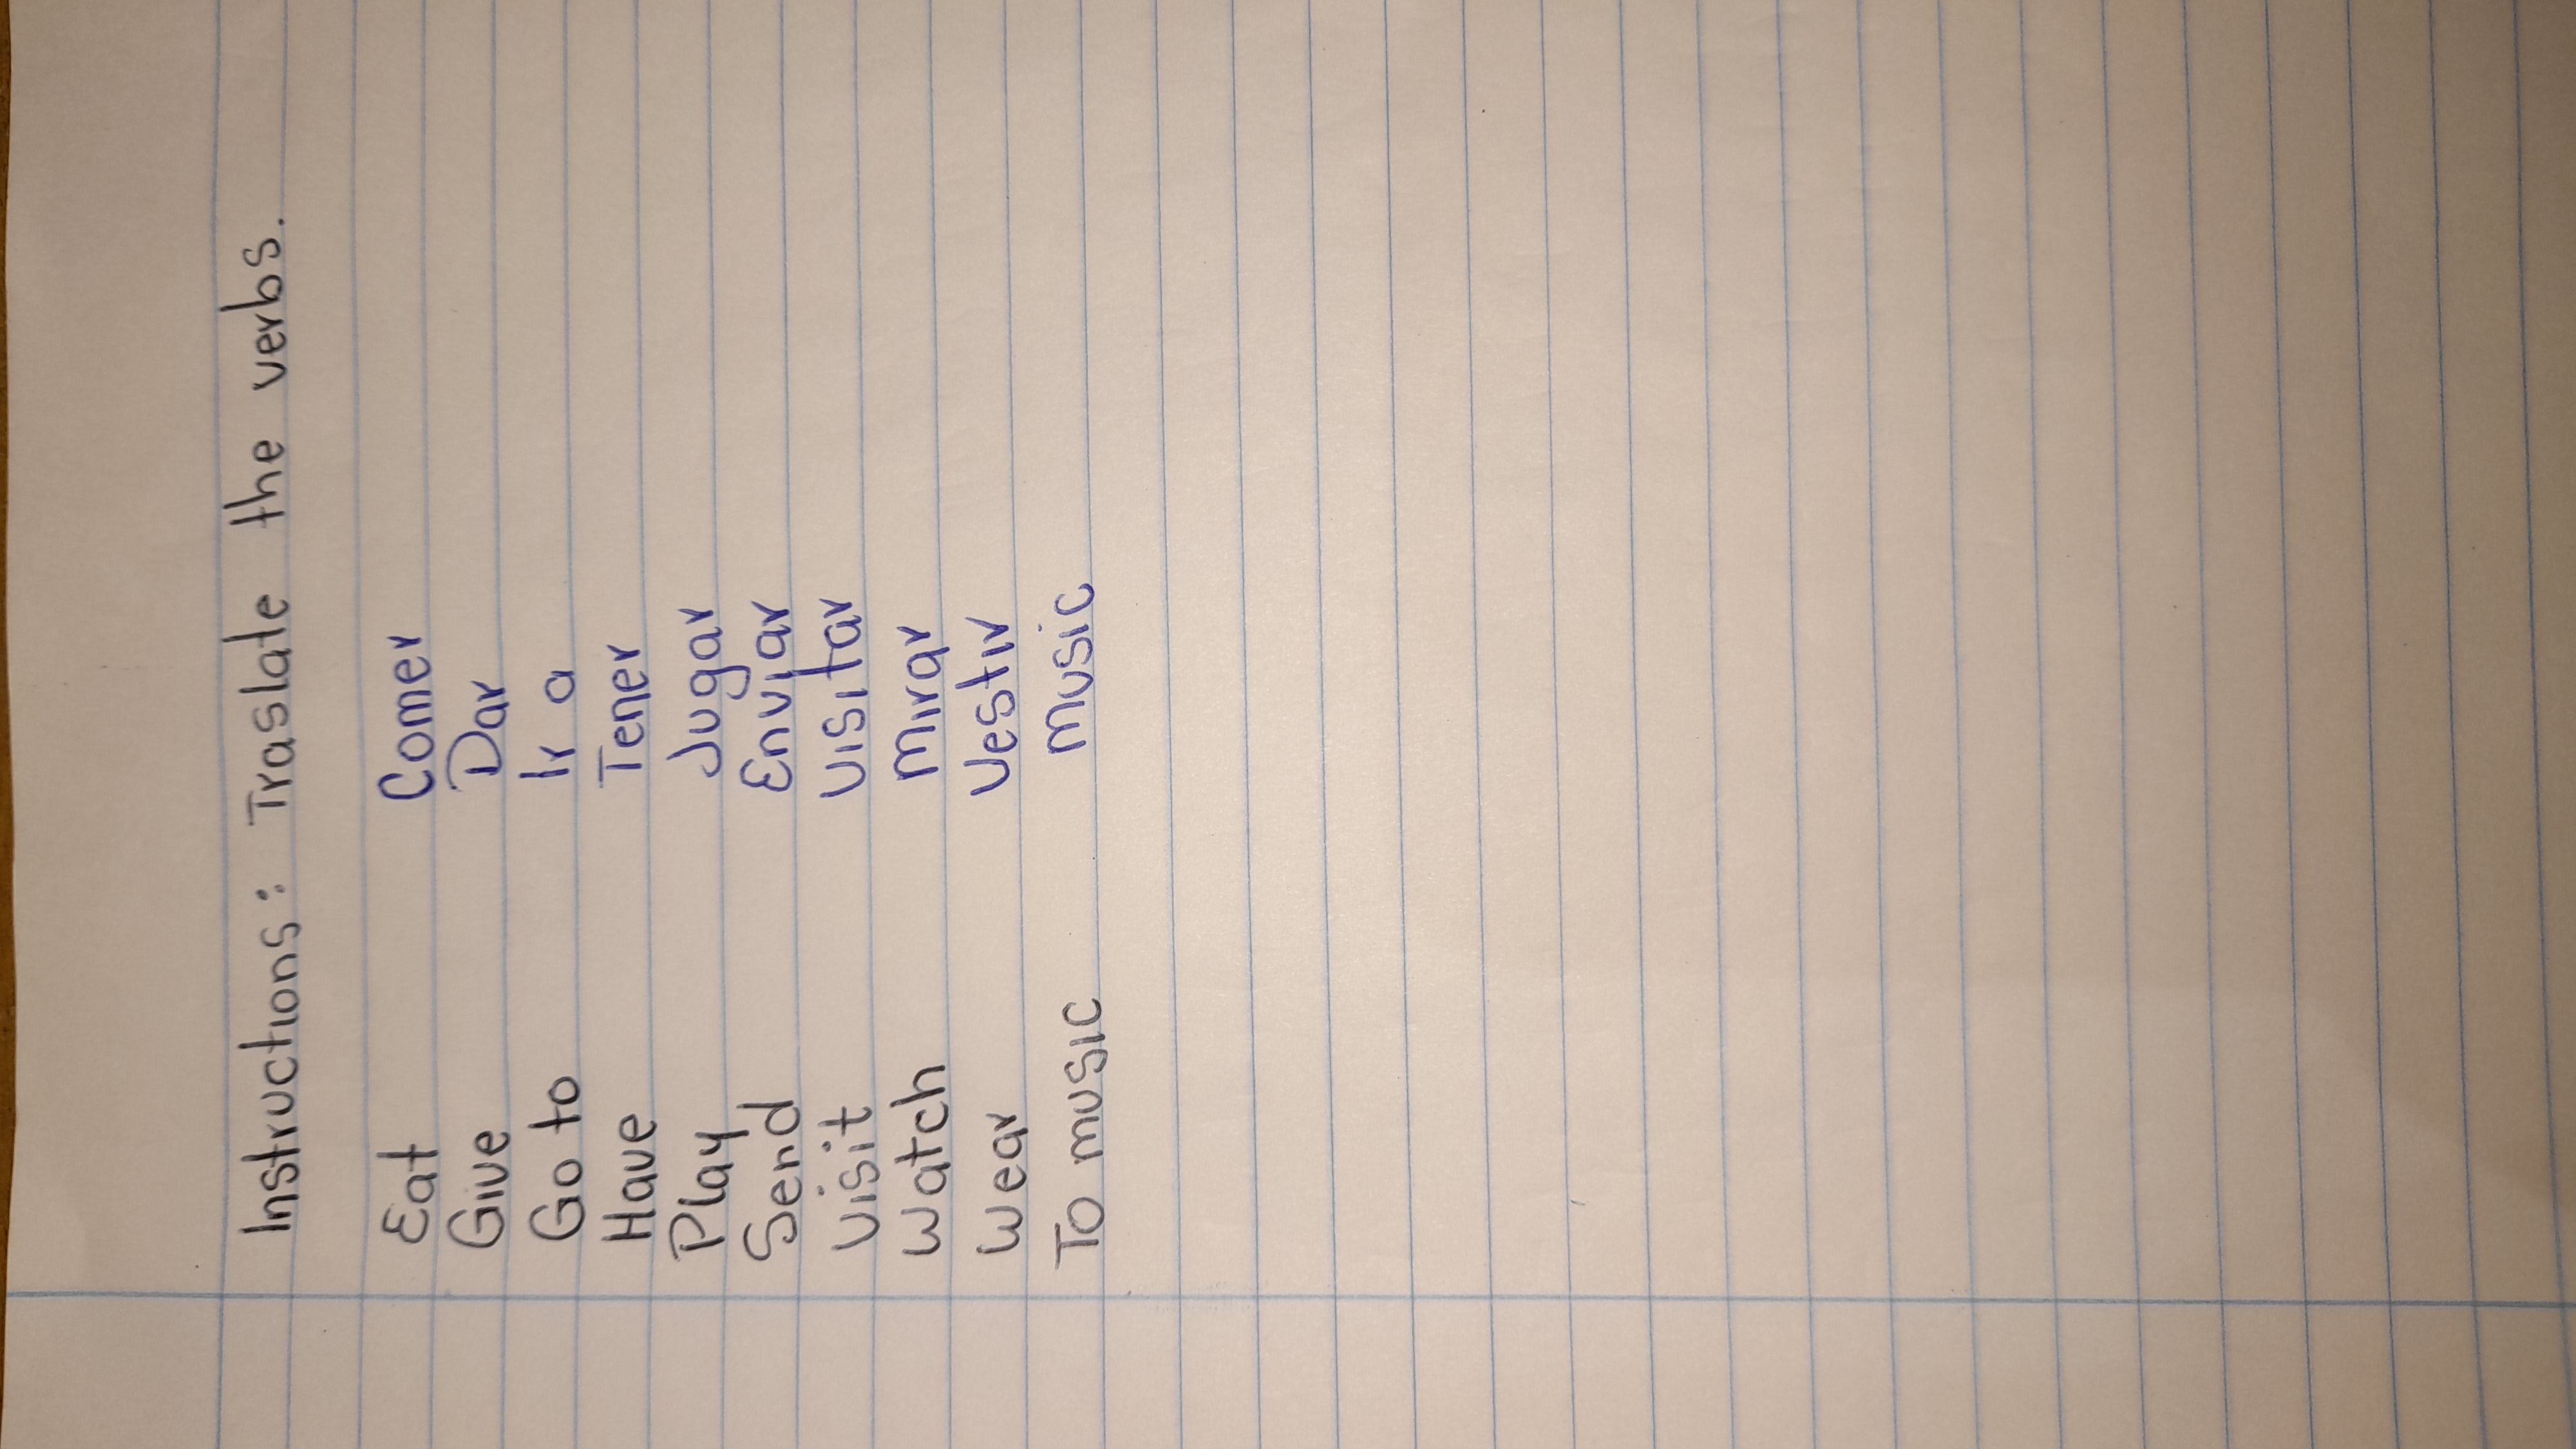 Instructions: Traslate the verbs.
Eat Comer
Give Dar
Go to Ir a
Have Tener
Play Jugar
Send Enviar
Visit Visitar
Watch Mirar
Wear Vestir
To music music